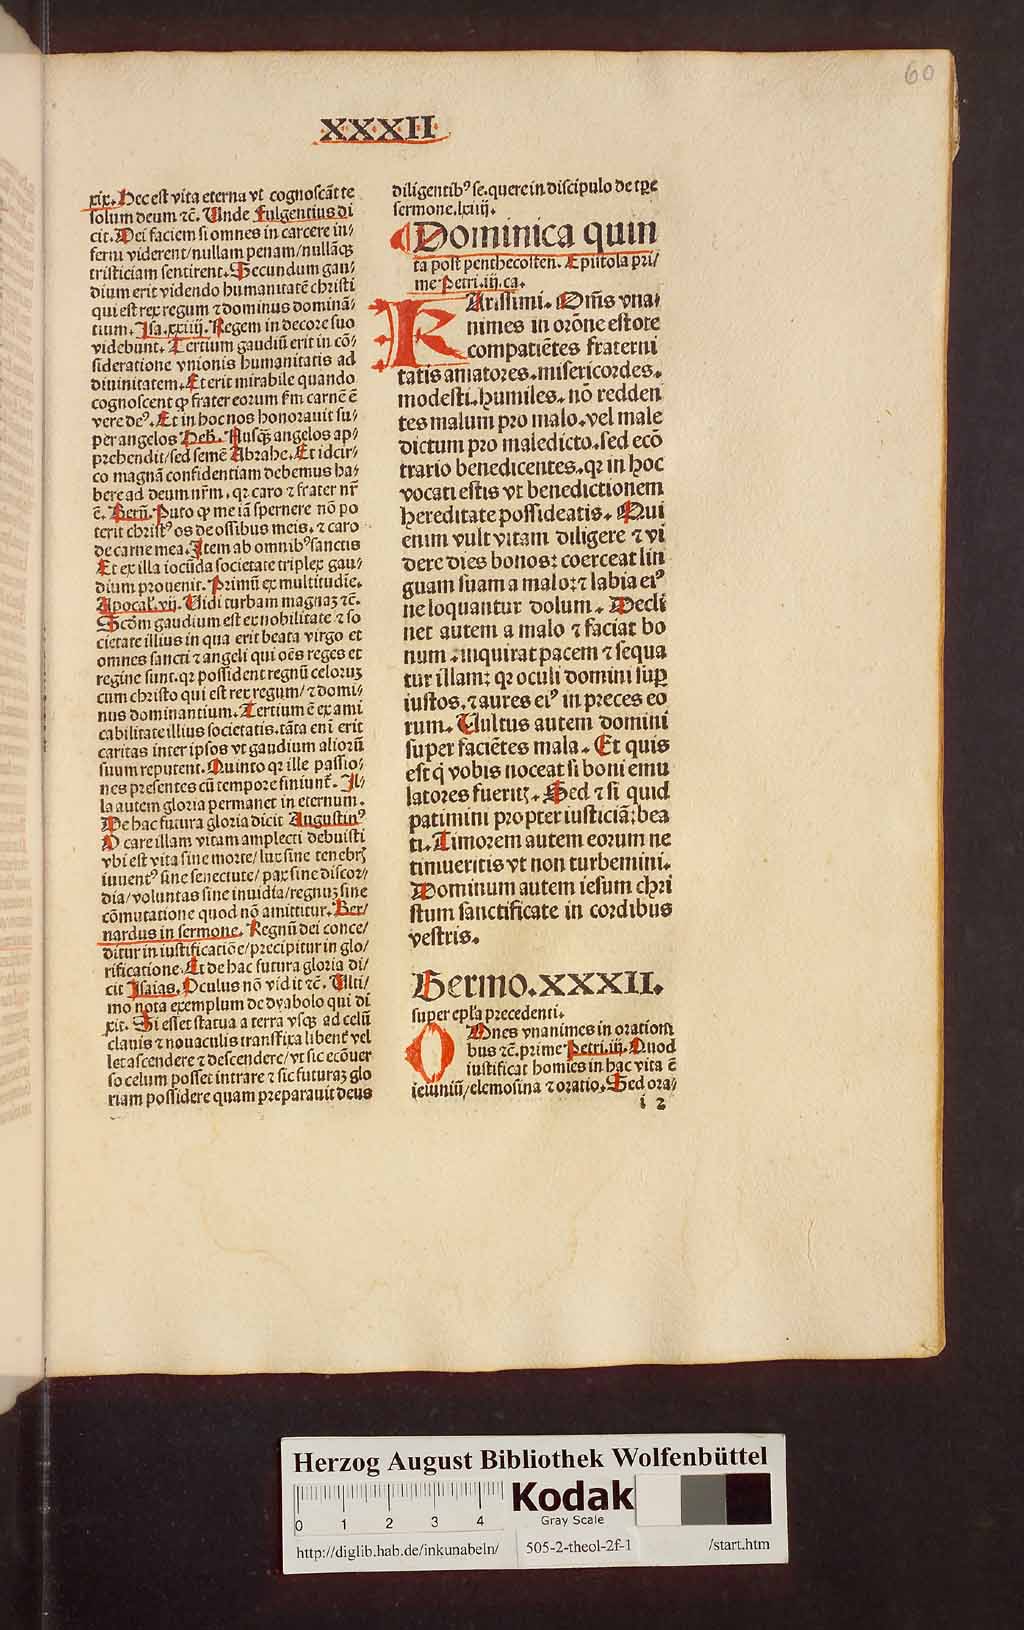 60
XXXII
xix. Hec est vita eterna vt cognoscāt te
solum deum ⁊c̄. Unde Fulgentius di
cit. Dei faciem si omnes in carcere in⸗
ferni viderent/nullam penam/nullāqꝫ
tristiciam sentirent. Secundum gau⸗
dium erit videndo humanitatē christi
qui est rex regum ⁊ dominus dominā⸗
tium. Isa. xxiiij. Regem in decore suo
videbunt. Tertium gaudiū erit in cō⸗
sideratione vnionis humanitatis ad
diuinitatem. Et erit mirabile quando
cognoscent ꝙ frater eorum ẜm carnē ē
vere deꝰ. Et in hoc nos honorauit su⸗
per angelos Heb. Nusqꝫ angelos ap⸗
prehendit/sed semē Abrahe. Et idcir⸗
co magnā confidentiam debemus ha⸗
bere ad deum nr̄m. qꝛ caro ⁊ frater nr̄
ē. Bern̄. Puto ꝙ me iā spernere nō po
terit christꝰ os de ossibus meis. ⁊ caro
de carne mea. Item ab omnibꝰ sanctis
Et ex illa iocūda societate triplex gau⸗
dium prouenit. Primū ex multitudīe.
Apocal. vij. Uidi turbam magnaꝫ ⁊c̄.
Scd̄m gaudium est ex nobilitate ⁊ so
cietate illius in qua erit beata virgo et
omnes sancti ⁊ angeli qui oēs reges et
regine sunt. qꝛ possident regnū celoruꝫ
cum christo qui est rex regum/⁊ domi⸗
nus dominantium. Tertium ē ex ami
cabilitate illius societatis. tāta eni erit
caritas inter ipsos vt gaudium aliorū
suum reputent. Quinto qꝛ ille passio⸗
nes presentes cū tempore finiunt̄. Il⸗
la autem gloria permanet in eternum.
De hac futura gloria dicit Augustinꝰ
O care illam vitam amplecti debuisti
vbi est vita sine morte/lux sine tenebrꝭ
iuuentꝰ sine senectute/pax sine discor⸗
dia/voluntas sine inuidia/regnuꝫ sine
cōmutatione quod nō amittitur. Ber⸗
nardus in sermone. Regnū dei conce⸗
ditur in iustificatiōe/precipitur in glo⸗
rificatione. Et de hac futura gloria di⸗
cit Isaias. Oculus nō vidit ⁊c̄. Ulti⸗
mo nota exemplum de dyabolo qui di
xit. Si esset statua a terra vsqꝫ ad celū
clauis ⁊ nouaculis transfixa libent̄ vel
let ascendere ⁊ descendere/vt sic ecōuer
so celum posset intrare ⁊ sic futuraꝫ glo
riam possidere quam preparauit deus
diligentibꝰ se. quere in discipulo de tꝑe
sermone. lxiiij.
Dominica quin
ta post penthecosten. Epistola pri⸗
me Petri. iij. ca.
KArissimi. Om̄s vna⸗
nimes in orōne estote
compatiētes fraterni
tatis amatores. misericordes.
modesti. humiles. nō redden
tes malum pro malo. vel male
dictum pro maledicto. sed ecō
trario benedicentes. qꝛ in hoc
vocati estis vt benedictionem
hereditate possideatis. Qui
enim vult vitam diligere ⁊ vi
dere dies bonos: coerceat lin
guam suam a malo: ⁊ labia eiꝰ
ne loquantur dolum. Decli
net autem a malo ⁊ faciat bo
num. inquirat pacem ⁊ sequa
tur illam: qꝛ oculi domini suꝑ
iustos. ⁊ aures eiꝰ in preces eo
rum. Uultus autem domini
super faciētes mala. Et quis
est q̇ vobis noceat si boni emu
latores fueritꝭ. Sed ⁊ si quid
patimini propter iusticiā: bea
ti. Timorem autem eorum ne
timueritis vt non turbemini.
Dominum autem iesum chri
stum sanctificate in cordibus
vestris.
Sermo. XXXII.
super epl̄a precedenti.
OMnes vnanimes in orationi
bus ⁊c̄. prime Petri. iij. Quod
iustificat homīes in hac vita ē
ieiuniū/elemosina ⁊ oratio. Sed ora⸗
i 2
Herzog August Bibliothek Wolfenbüttel
0 1 2 3 4
Kodak
Gray Scale
http://diglib.hab.de/inkunabeln/ 505-2-theol-2f-1 /start.htm